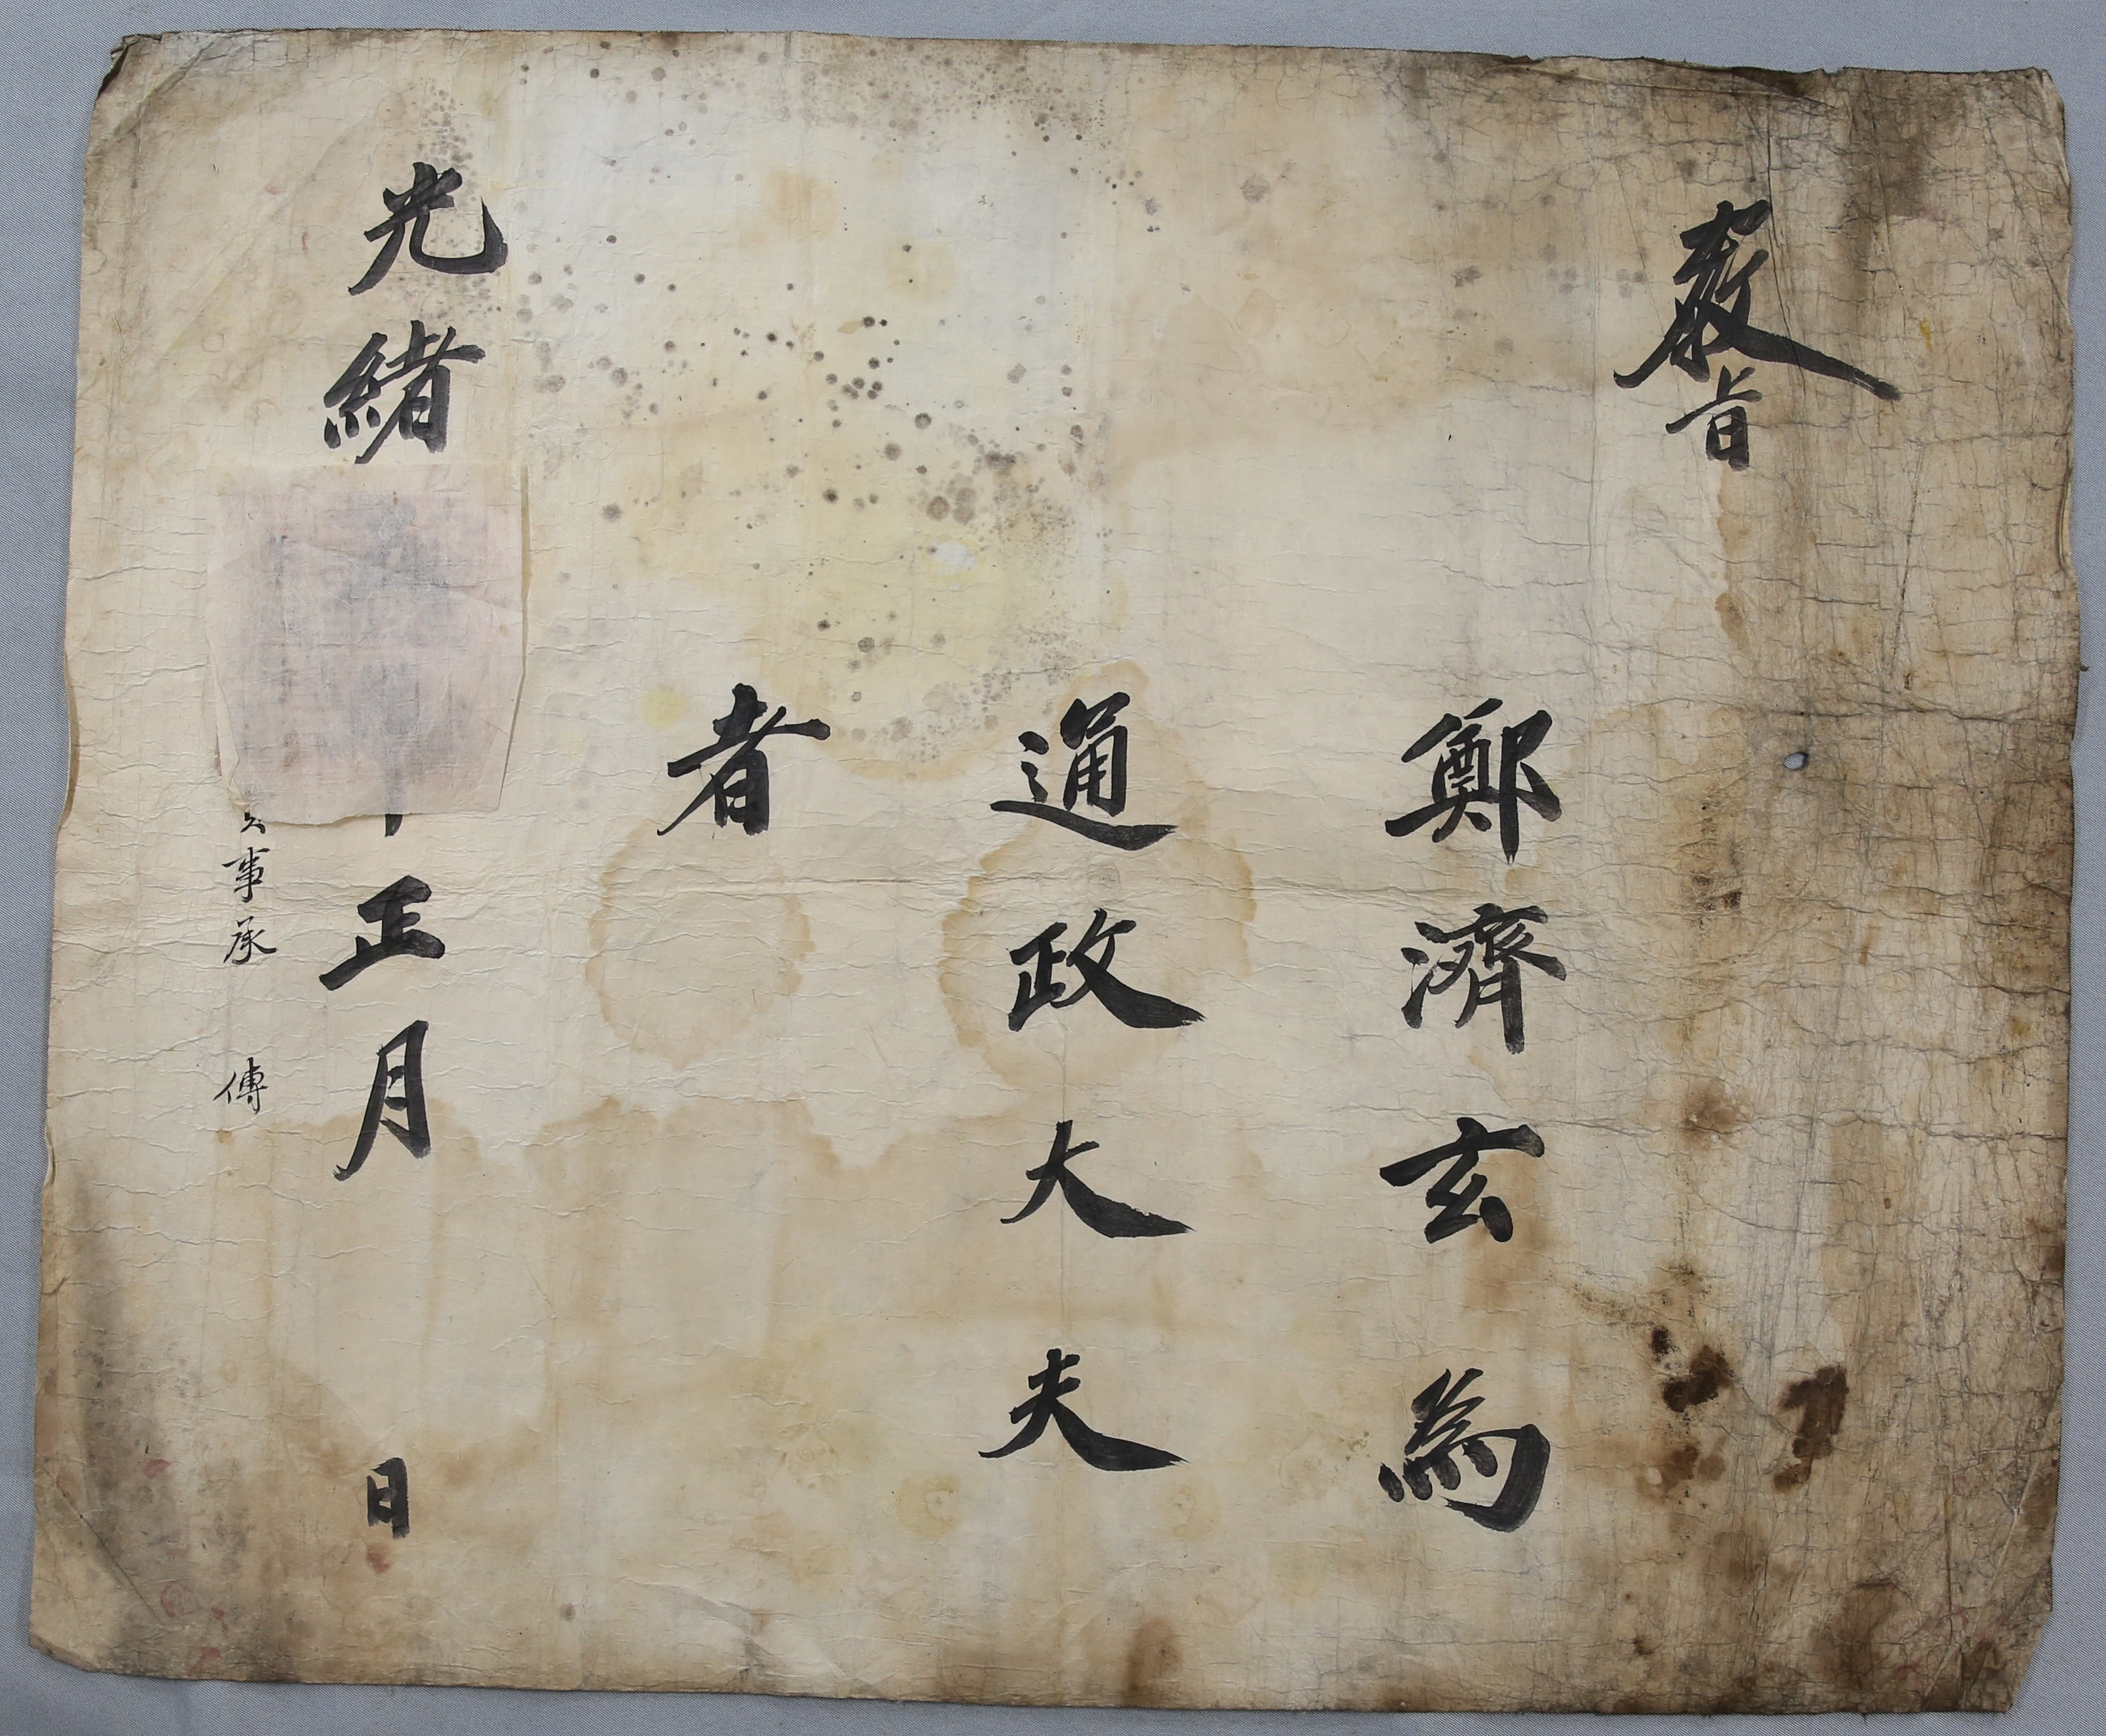 敎旨
鄭濟玄爲
通政大夫
者
光緖 年正月 日
事承 傳